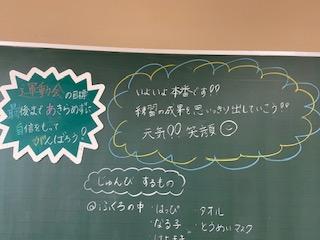 運動会の目標
最後まであきらめずに
自信をもって
がんばろう!
いよいよ本番です!!
練習の成果を思いっきり出していこう!!
元気!! 笑顔
じゅんび するもの
@ふくろの中
・はっぴ
・なる子
・はちまき
・タオル
・とうめいマスク